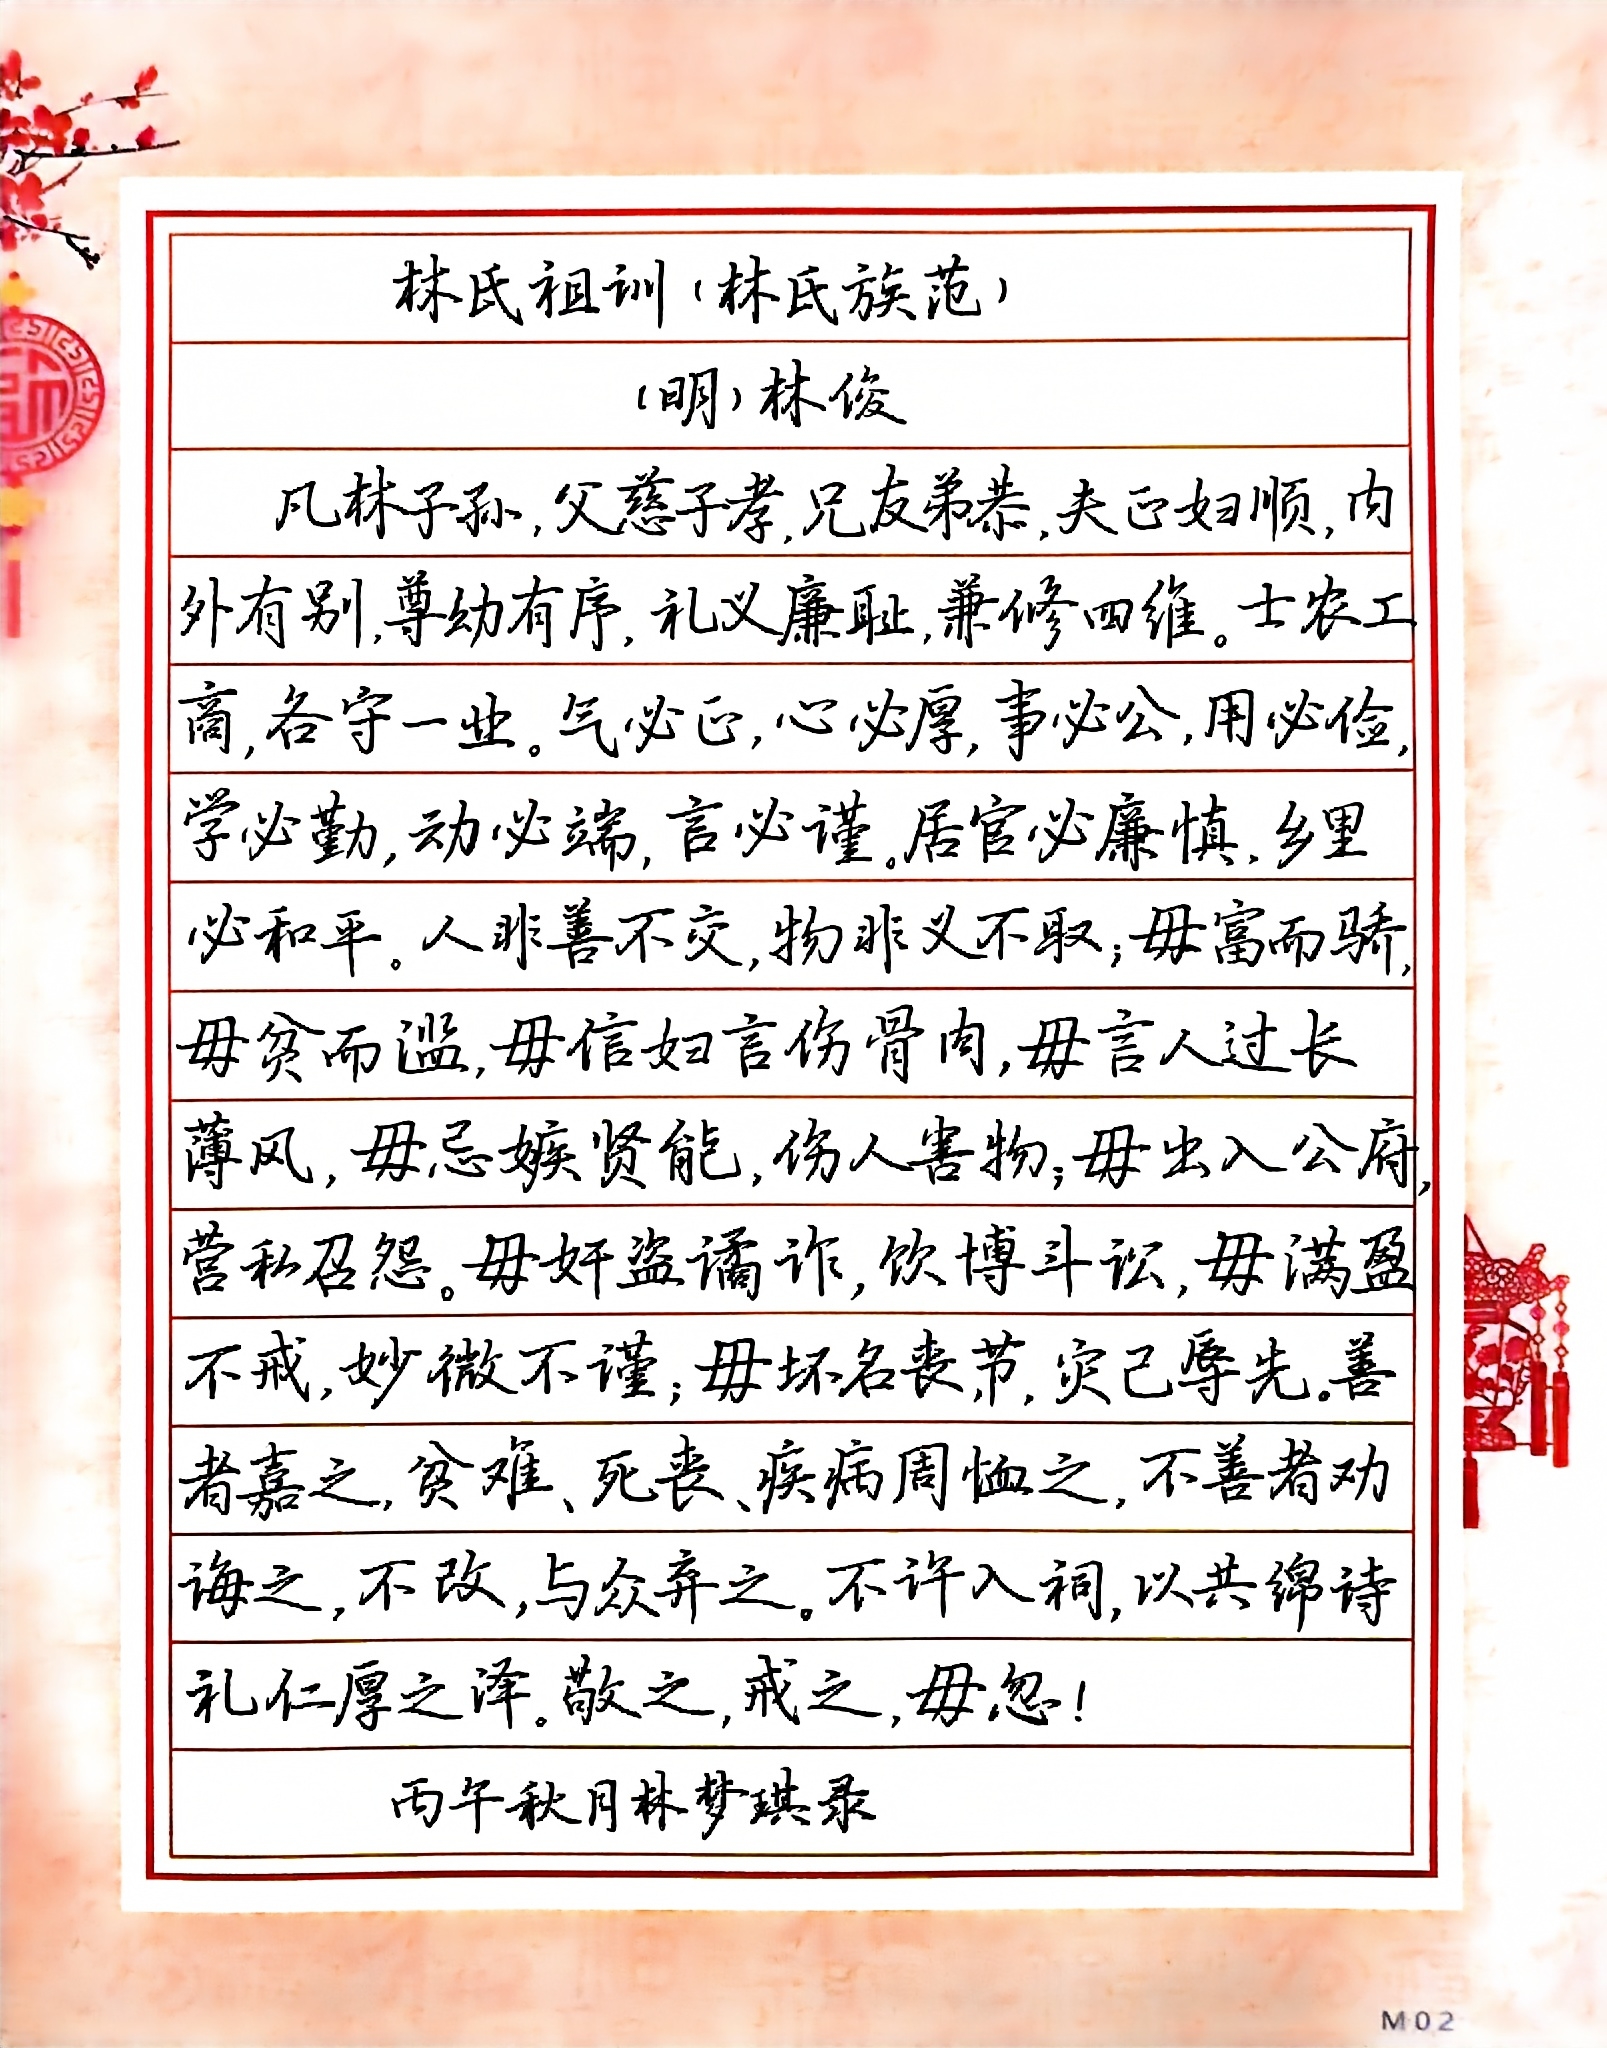 林氏祖训（林氏族范）
（明）林俊
凡林子孙，父慈子孝，兄友弟恭，夫正妇顺，内
外有别，尊幼有序，礼义廉耻，兼修四维。士农工
商，各守一业。气必正，心必厚，事必公，用必俭，
学必勤，动必端，言必谨。居官必廉慎，乡里
必和平。人非善不交，物非义不取；毋富而骄，
毋贫而滥，毋信妇言伤骨肉，毋言人过长
薄风，毋忌嫉贤能，伤人害物；毋出入公府，
营私召怨。毋奸盗谲诈，饮博斗讼，毋满盈
不戒，妙微不谨；毋坏名丧节，灾己辱先。善
者嘉之，贫难、死丧、疾病周恤之，不善者劝
诲之，不改，与众弃之。不许入祠，以共绵诗
礼仁厚之泽。敬之，戒之，毋忽！
丙午秋月林梦琪录
M02